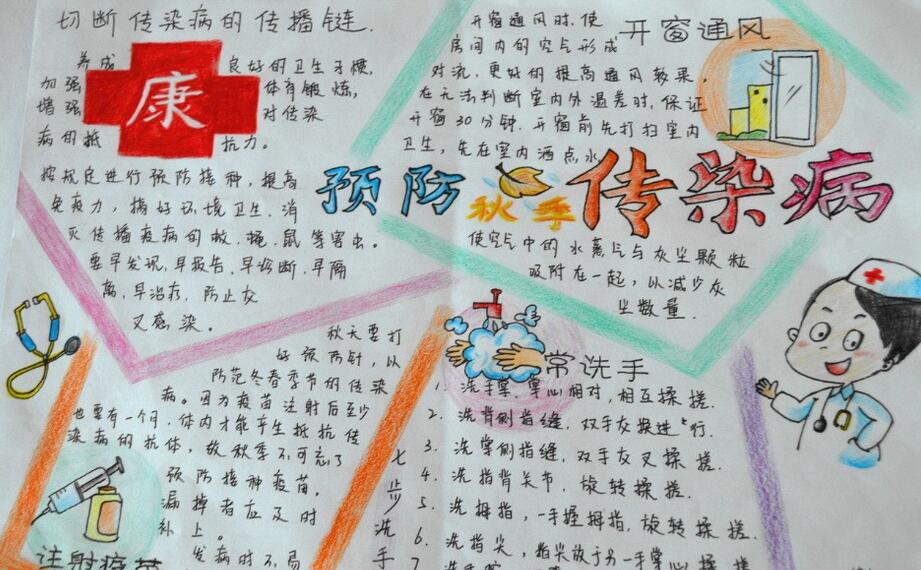 切断传染病的传播链.
养成 良好的卫生习惯,
加强 体育锻炼,
增强 对传染
病的抵 抗力。
康
按规定进行预防接种,提高
免疫力,搞好环境卫生.消
灭传播疫病的蚊、蝇、鼠等害虫。
要早发现、早报告、早诊断、早隔
离,早治疗,防止交
叉感染。
开窗通风
开窗通风时.使
房间内的空气形成
对流.更好的提高通风效果,
在无法判断室内外温差时,保证
开窗30分钟.开窗前先打扫室内
卫生,先在室内洒点水
预防秋季传染病
使空气中的水蒸气与灰尘颗粒
吸附在一起,以减少灰
尘数量.
秋天要打
好预防针,以
防范冬春季节的传染
病。因为疫苗注射后至少
也要有一个月.体内才能产生抵抗传
染病的抗体,故秋季不可忘了
预防接种疫苗。
漏掉者应及时
补上。
注射疫苗
发病时不易
七步洗手
常洗手
1. 洗手掌.掌心相对,相互揉搓.
2. 洗背侧指缝.双手交换进行.
3. 洗掌侧指缝.双手交叉揉搓.
4. 洗指背关节,旋转揉搓.
5. 洗拇指,一手握拇指,旋转揉搓.
6. 洗指尖,指尖放于另一手掌心揉搓
7